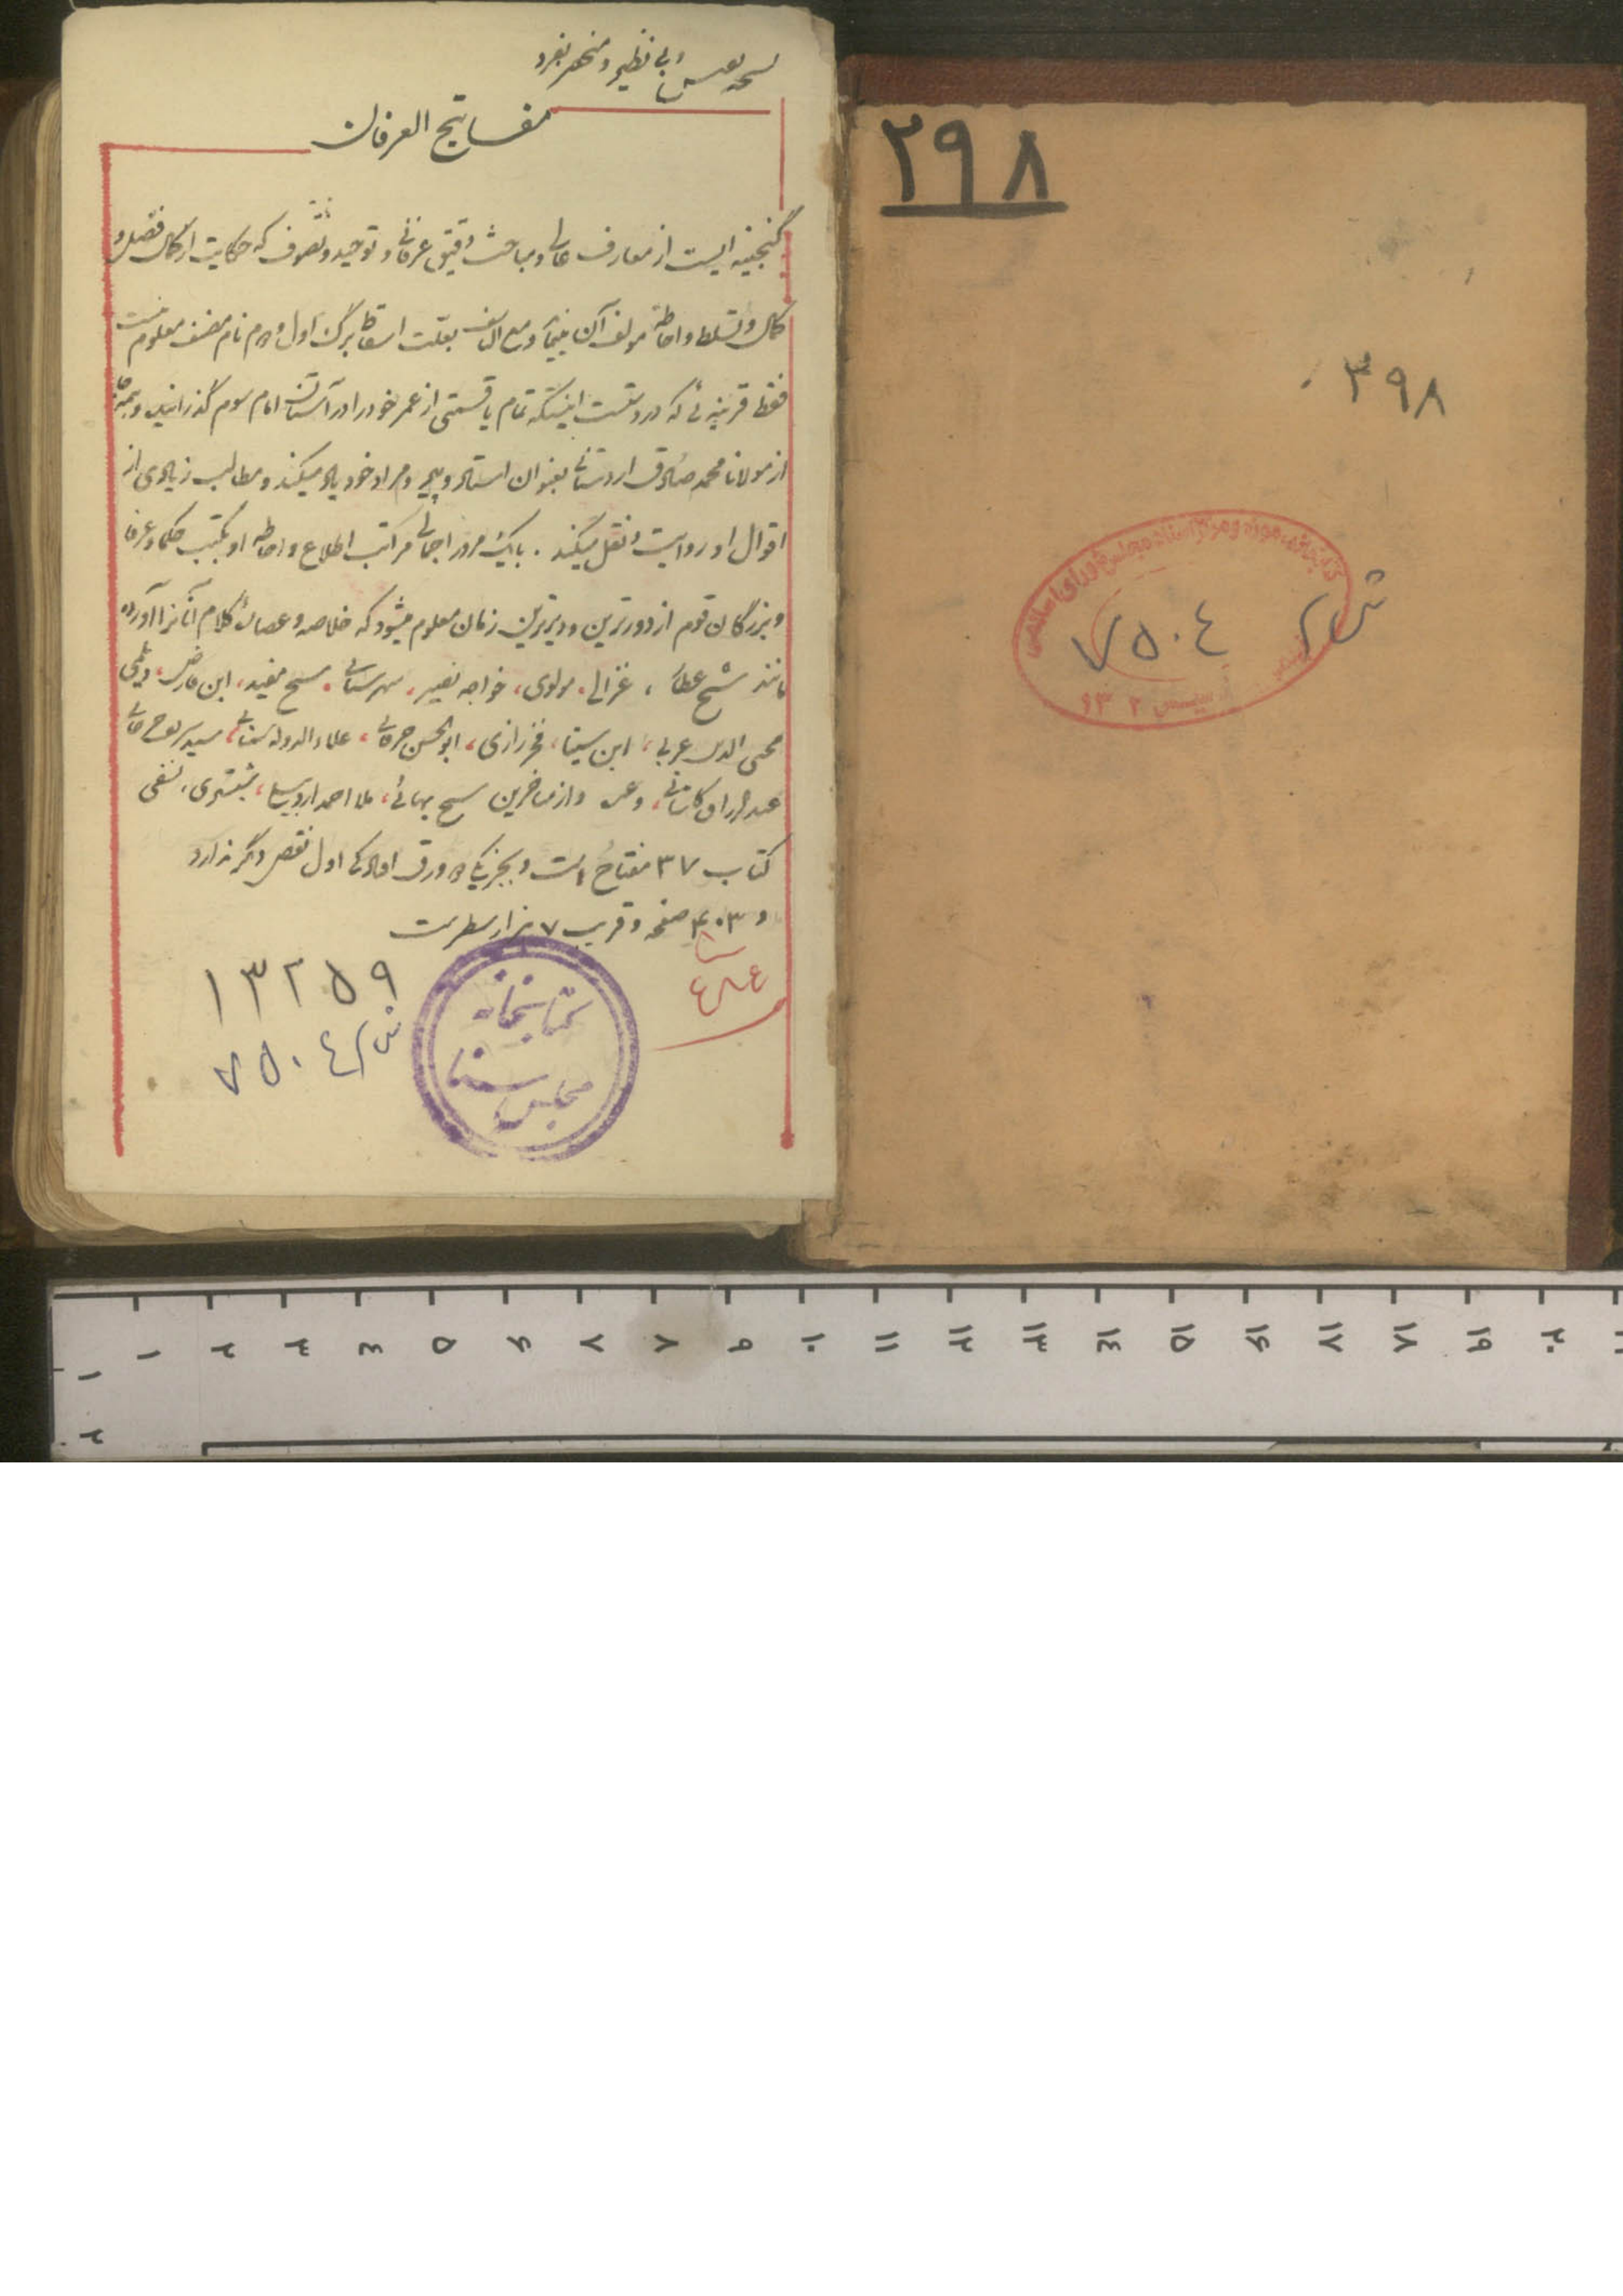 ۲۹۸
۳۹۸
کتابخانه، موزه و مرکز اسناد مجلس شورای اسلامی
ش
۷۵۰۴
تأسیس ۱۳۰۲
نسخه نفیس و بی نظیر و منحصر بفرد
مفاتیح العرفان
گنجینه ایست از معارف عالی و مباحث دقیق عرفانی و توحید و تصوف که حکایت از کمال فضل و
کمال و تسلط و احاطه مولف آن مینماید و مع الاسف بعلت اسقاط برگ اول و دوم نام مصنف معلوم نیست
فقط قرینه ئی که در دستست اینستکه تمام یا قسمتی از عمر خود را در آستان امام سوم گذرانیده و همه جا
از مولانا محمد صادق اردستانی بعنوان استاد و پیر و مراد خود یاد میکند و مطالب زیادی از
اقوال او روایت و نقل میکند . با یک مرور اجمالی مراتب اطلاع و احاطه او بکتب حکما و عرفا
و بزرگان قوم از دورترین و دیرترین زمان معلوم میشود که خلاصه و عصاره کلام آنانرا آورده
مانند شیخ عطار ، غزالی ، مولوی ، خواجه نصیر ، شهرستانی ، شیخ مفید ، ابن فارض ، دیلمی
محیی الدین عربی ، ابن سینا ، فخر رازی ، ابوالحسن خرقانی ، علاءالدوله سمنانی ، سید شریف جرجانی
عبدالرزاق کاشانی ، و غیره و از متاخرین شیخ بهائی ، ملا احمد اردبیلی ، شبستری ، نسفی
کتاب ۳۷ مفتاح است و بجز یکی دو ورق افتادگی اول نقص دیگر ندارد
و ۴۰۳ صفحه و قریب ۷ هزار سطر است
۱۳۲۵۹
ش ۷۵۰۴
کتابخانه
مجلس سنا
۱
۲
۳
۴
۵
۶
۷
۸
۹
۱۰
۱۱
۱۲
۱۳
۱۴
۱۵
۱۶
۱۷
۱۸
۱۹
۲۰
۱
۲